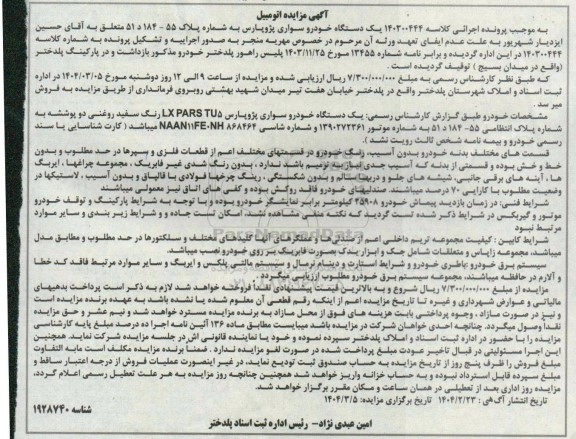 آگهی مزایده اتومبیل
به موجب پرونده اجرائی کلاسه ۱۴۰۳۰۰۴۴۴ یک دستگاه خودرو سواری پژوپارس به شماره پلاک ۵۵ - ۱۸۴ د ۵۱ متعلق به آقای حسین
ایزدیار شهریور به علت عدم ایفای تعهد ورثه آن مرحوم در خصوص مهریه منجر به صدور اجراییه و تشکیل پرونده به شماره کلاسه
۱۴۰۳۰۰۴۴۴ در این اداره گردیده و برابر نامه شماره ۱۳۴۵۵ مورخ ۱۴۰۳/۱۱/۲۵ پلیس راهور پلدختر خودرو مذکور بازداشت و در پارکینگ پلدختر
(واقع در میدان بسیج ) توقیف گردیده است .
که طبق نظر کارشناس رسمی به مبلغ ۷/۳۰۰/۰۰۰/۰۰۰ ریال ارزیابی شده و مزایده از ساعت ۹ الی ۱۲ روز دوشنبه مورخ ۱۴۰۴/۰۳/۰۵ در اداره
ثبت اسناد و املاک شهرستان پلدختر واقع در پلدختر خیابان هفت تیر میدان شهید بهشتی روبروی فرمانداری از طریق مزایده به فروش
میرسد .
مشخصات خودرو طبق گزارش کارشناس رسمی: یک دستگاه خودرو سواری پژوپارس LX PARS TU۵ رنگ سفید روغنی دو پوششه به
شماره پلاک انتظامی ۵۵- ۱۸۴ د ۵۱ به شماره موتور ۱۳۹۰۲۷۲۳۶۱ و شماره شاسی NAAN۱۱FE۰NH ۸۶۸۴۶۴ میباشد ( کارت شناسایی یا سند
رسمی خودرو و بیمه نامه شخص ثالث رویت نشد ).
قسمت های مختلف بدنه خودرو بدون آسیب، رنگ خودرو در قسمتهای مختلف اعم از قطعات فلزی و سپرها در حد مطلوب و بدون
خط و خش بوده و قسمتی از بدنه که آسیب جدی نیاز به ترمیم باشد ندارد . بدون رنگ شدی غیر فابریک ، مجموعه چراغها ، ایرنگ
ها ، آینه های برقی جانبی، شیشه های جلو و دربها سالم و بدون شکستگی ، رینگ چرخها فولادی با قالپاق و بدون آسیب ، لاستیکها در
وضعیت مطلوب با کارایی ۷۰ درصد میباشند. صندلیهای خودرو فاقد روکش بوده و کفی های اتاق نیز معمولی میباشند
شرایط فنی: در زمان بازدید پیماش خودرو ۲۵۹۰۸ کیلومتر برابر نمایشگر خودرو بوده و با توجه به شرایط پارکینگ و توقف خودرو
موتور و گیربکس در شرایط ذکر شده تست گردید که نکته منفی مشاهده نشد، امکان تست جاده و و شرایط زیر بندی و سایر موارد
مرتبط نبود
شرایط کابین : کیفیت مجموعه تریم داخلی اعم از صندلی ها و عملگرهای آنها کلیدهای مختلف و سلکتورها در حد مطلوب و مطابق مدل
میباشد، مجموعه زاپاس و متعلقات شامل جک و ابزار یدک بصورت فابریک بر روی خودرو نصب میباشد.
سیستم برق خودرو باطری خودرو و شرایط استارت و دینام نرمال و سیستم مالتی پلکس و ایربگ و سایر موارد مرتبط فاقد کد خطا
و آلارم در حافظه میباشند، مجموعه سیستم برق خودرو مطلوب ارزیابی میگردد .
مزایده از مبلغ ۷/۳۰۰/۰۰۰/۰۰۰ ریال شروع و به بالاترین قیمت پیشنهادی نقدا فروخته خواهد شد لازم به ذکر است پرداخت بدهیهای
مالیاتی و عوارض شهرداری و غیره تا تاریخ مزایده اعم از اینکه رقم قطعی آن معلوم شده یا نشده باشد به عهده برنده مزایده است
و نیز در صورت مازاد ، وجوه پرداختی بابت هزینه های فوق از محل مازاد به برنده مزایده مسترد خواهد شد و نیم عشر و حق مزایده
نقدا وصول میگردد. چنانچه احدی خواهان شرکت در مزایده باشد میبایست مطابق ماده ۱۳۶ آئین نامه اجرا ده درصد مبلغ پایه کارشناسی
مزایده را با حضور در اداره ثبت اسناد و املاک پلدختر سپرده نموده و خود یا نماینده قانونی اش در جلسه مزایده شرکت نماید. همچنین
این اجرا مسئولیتی در قبال تاخیر عودت مبلغ پرداخت شده در صورت لغو مزایده ندارد . ضمنا برنده مزایده مکلف است مابه التفاوت
مبلغ فروش را ظرف پنج روز از تاریخ مزایده به حساب صندوق ثبت تودیع نمایند در غیر اینصورت عملیات فروش از درجه اعتبار ساقط و
مبلغ سپرده قابل استرداد نبوده و به حساب خزانه واریز خواهد شد همچنین چنانچه روز مزایده به هر علت تعطیل رسمی اعلام گردد،
مزایده روز اداری بعد از تعطیلی در همان ساعت و مکان مقرر برگزار خواهد شد.
تاریخ انتشار آگهی : ۱۴۰۴/۲/۲۳ تاریخ برگزاری مزایده: ۱۴۰۴/۳/۵
شناسه ۱۹۲۸۷۴۰
امین عبدی نژاد- رئیس اداره ثبت اسناد پلدختر